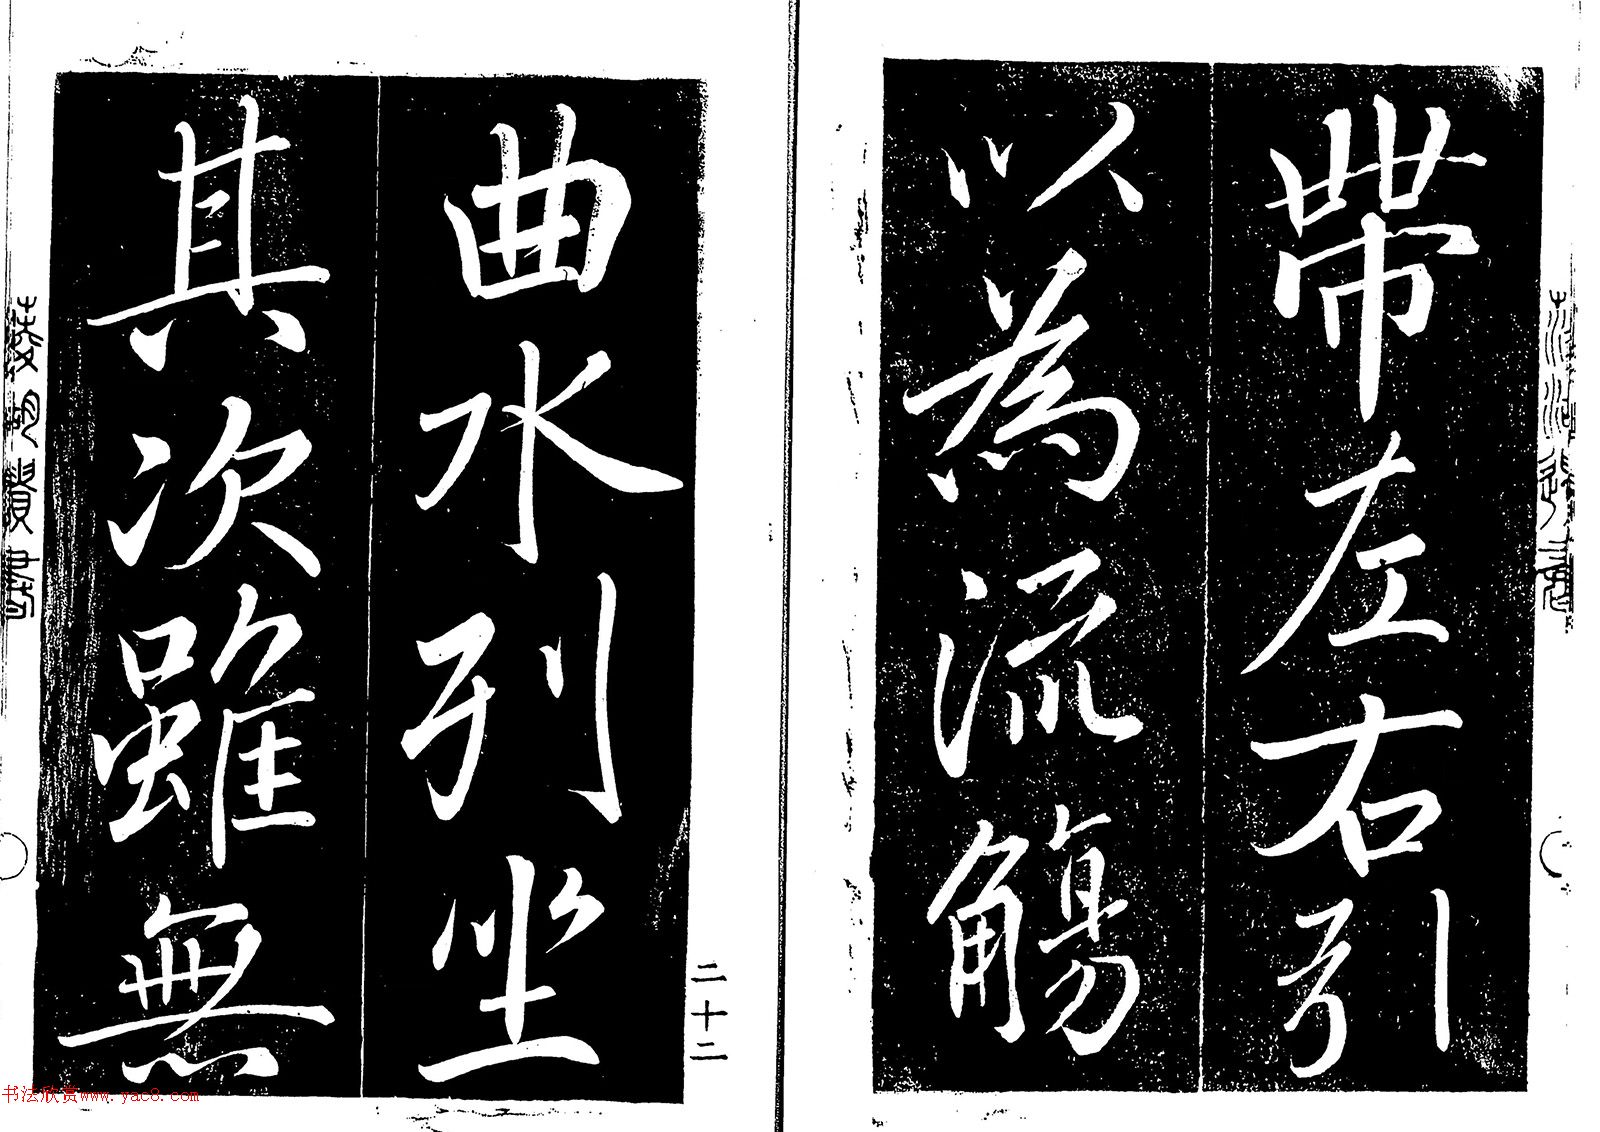 帶左右引
以為流觴
曲水列坐
其次雖無
二十二
书法欣赏www.yac8.com